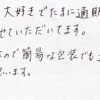 大好きでたまに通販
せていただいてます。
ので簡易な包装でも
思います。